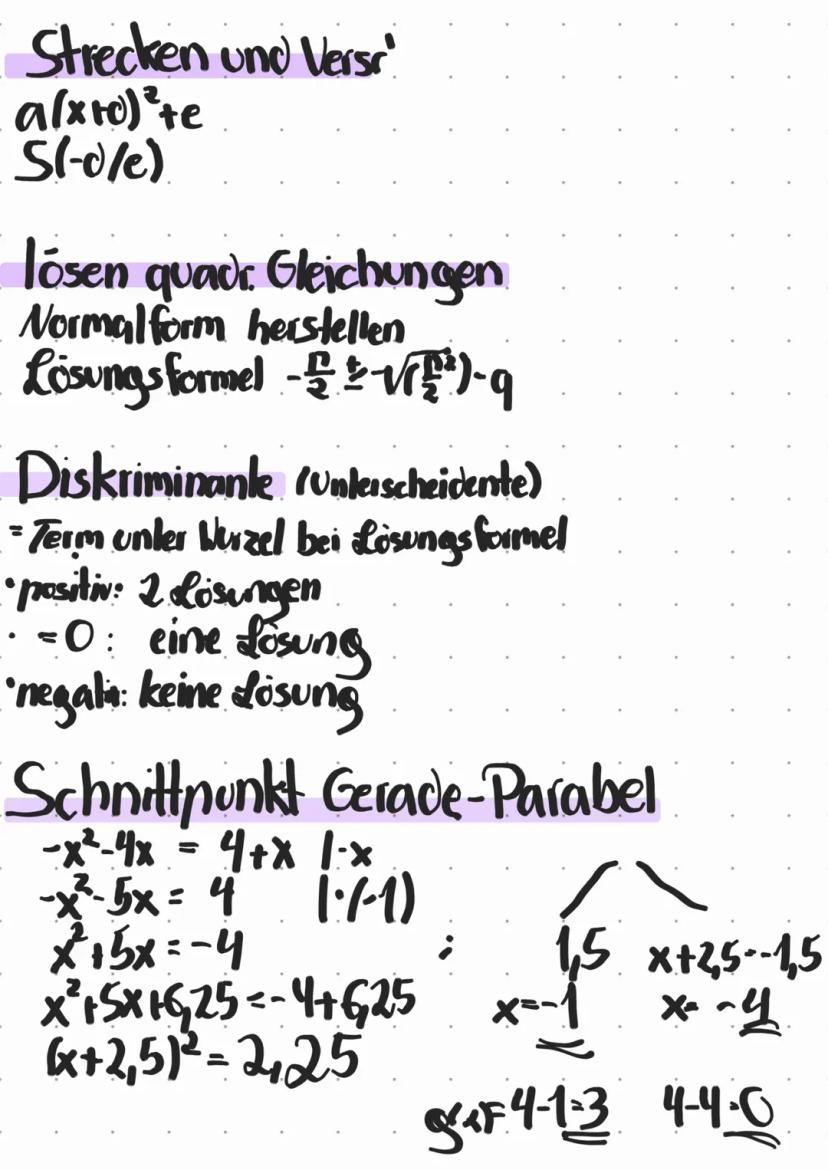 Strecken und Versch
a(x+d)²+e
S(-d/e)
lösen quadr. Gleichungen
Normalform herstellen
Lösungsformel -p/2 ± √(p/2²)-q
Diskriminante (Unterscheidente)
= Term unter Wurzel bei Lösungsformel
• positiv: 2 Lösungen
• =0: eine Lösung
• negativ: keine Lösung
Schnittpunkt Gerade-Parabel
-x²-4x = 4+x |-x
-x²-5x = 4 |·(-1)
x²+5x = -4
x²+5x+6,25 = -4+6,25
(x+2,5)² = 2,25
1,5 x+2,5=-1,5
x=-1 x=-4
4-1=3 4-4=0